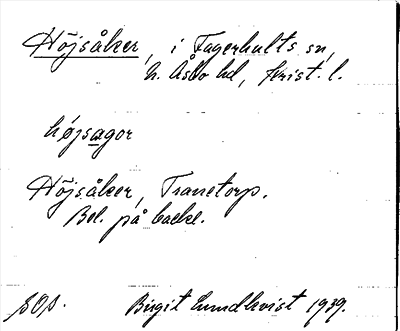 Höjsåker, i Fagerhults sn,
N. Åsbo hd, Krist. l.
höjsagor
Höjsåker, Tranetorp.
Bel. på backe.
SOS. Birgit Lundkvist 1939.